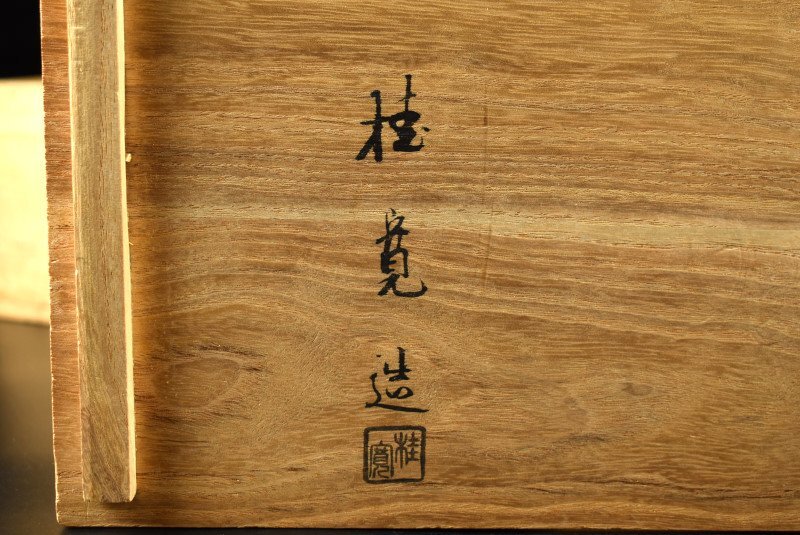 桂寛造
桂寛